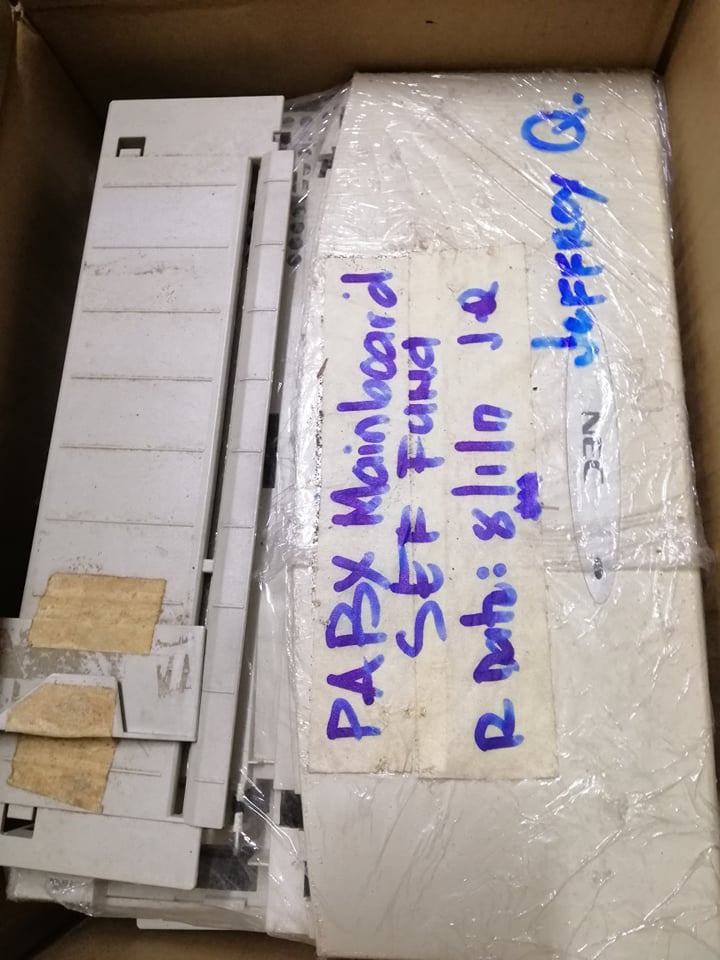 PABX Mainboard
SEF Fund
R Date: 8/1/17 J Q
Jeffroy Q.
NEC